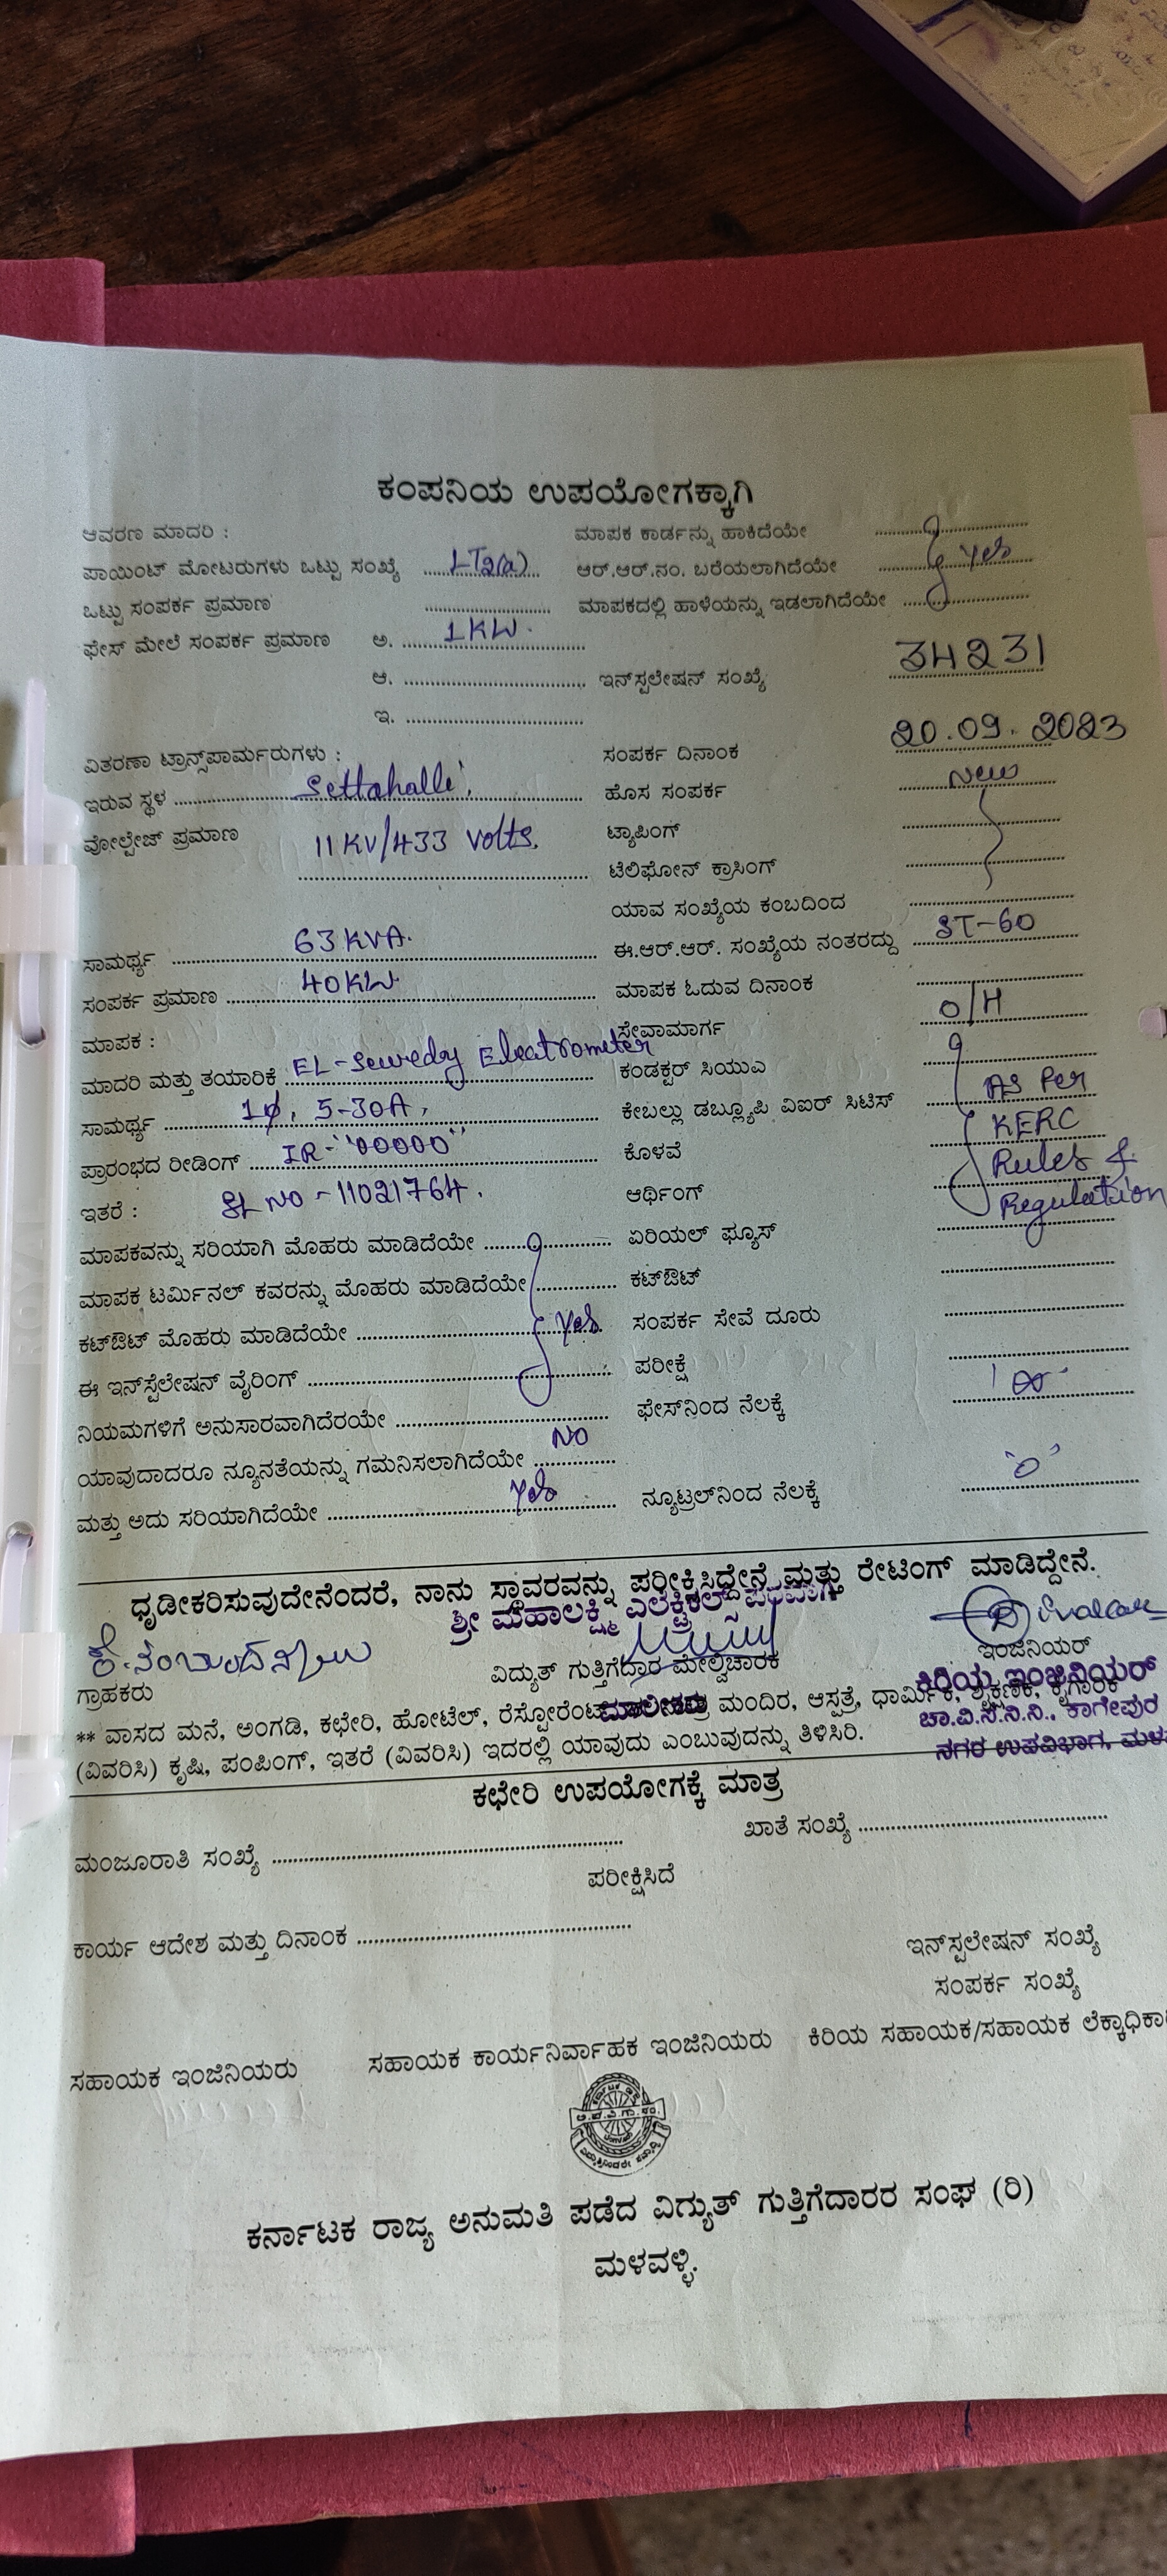 ಕಂಪನಿಯ ಉಪಯೋಗಕ್ಕಾಗಿ
ಆವರಣ ಮಾದರಿ : ಮಾಪಕ ಕಾರ್ಡನ್ನು ಹಾಕಿದೆಯೇ
ಪಾಯಿಂಟ್ ಮೋಟರುಗಳು ಒಟ್ಟು ಸಂಖ್ಯೆ LT2(a) ಆರ್.ಆರ್.ನಂ. ಬರೆಯಲಾಗಿದೆಯೇ Yes
ಒಟ್ಟು ಸಂಪರ್ಕ ಪ್ರಮಾಣ ಮಾಪಕದಲ್ಲಿ ಹಾಳೆಯನ್ನು ಇಡಲಾಗಿದೆಯೇ
ಫೇಸ್ ಮೇಲೆ ಸಂಪರ್ಕ ಪ್ರಮಾಣ ಅ. 1KW.
ಆ. ಇನ್‌ಸ್ಟಲೇಷನ್ ಸಂಖ್ಯೆ 34231
ಇ.
ವಿತರಣಾ ಟ್ರಾನ್ಸ್‌ಪಾರ್ಮರುಗಳು : ಸಂಪರ್ಕ ದಿನಾಂಕ 20.09.2023
ಇರುವ ಸ್ಥಳ Settahalli ಹೊಸ ಸಂಪರ್ಕ New
ವೋಲ್ಟೇಜ್ ಪ್ರಮಾಣ 11KV/433 Volts. ಟ್ಯಾಪಿಂಗ್
ಟೆಲಿಫೋನ್ ಕ್ರಾಸಿಂಗ್
ಯಾವ ಸಂಖ್ಯೆಯ ಕಂಬದಿಂದ
ಸಾಮರ್ಥ್ಯ 63KVA. ಈ.ಆರ್.ಆರ್. ಸಂಖ್ಯೆಯ ನಂತರದ್ದು ST-60
ಸಂಪರ್ಕ ಪ್ರಮಾಣ 40KW ಮಾಪಕ ಓದುವ ದಿನಾಂಕ
ಮಾಪಕ : ಸೇವಾಮಾರ್ಗ O/H
ಮಾದರಿ ಮತ್ತು ತಯಾರಿಕೆ EL-Sewedy Electrometer ಕಂಡಕ್ಟರ್ ಸಿಯುವಿ
ಸಾಮರ್ಥ್ಯ 1ø, 5-30A, ಕೇಬಲ್ಲು ಡಬ್ಲ್ಯೂಪಿ ವಿಐರ್ ಸಿಟಿಸ್ As Per
ಪ್ರಾರಂಭದ ರೀಡಿಂಗ್ IR-"00000" ಕೊಳವೆ KERC
ಇತರೆ : SL NO-11021764. ಆರ್ಥಿಂಗ್ Rules &
Regulation
ಮಾಪಕವನ್ನು ಸರಿಯಾಗಿ ಮೊಹರು ಮಾಡಿದೆಯೇ ಏರಿಯಲ್ ಫ್ಯೂಸ್
ಮಾಪಕ ಟರ್ಮಿನಲ್ ಕವರನ್ನು ಮೊಹರು ಮಾಡಿದೆಯೇ ಕಟ್‌ಔಟ್
ಕಟ್‌ಔಟ್ ಮೊಹರು ಮಾಡಿದೆಯೇ Yes ಸಂಪರ್ಕ ಸೇವೆ ದೂರು
ಈ ಇನ್‌ಸ್ಟೆಲೇಷನ್ ವೈರಿಂಗ್ ಪರೀಕ್ಷೆ
ನಿಯಮಗಳಿಗೆ ಅನುಸಾರವಾಗಿದೆರಯೇ ಫೇಸ್‌ನಿಂದ ನೆಲಕ್ಕೆ
ಯಾವುದಾದರೂ ನ್ಯೂನತೆಯನ್ನು ಗಮನಿಸಲಾಗಿದೆಯೇ NO
ಮತ್ತು ಅದು ಸರಿಯಾಗಿದೆಯೇ Yes ನ್ಯೂಟ್ರಲ್‌ನಿಂದ ನೆಲಕ್ಕೆ 'O'
ಧೃಡೀಕರಿಸುವುದೇನೆಂದರೆ, ನಾನು ಸ್ಥಾವರವನ್ನು ಪರೀಕ್ಷಿಸಿದ್ದೇನೆ ಮತ್ತು ರೇಟಿಂಗ್ ಮಾಡಿದ್ದೇನೆ.
ಶ್ರೀ ಮಹಾಲಕ್ಷ್ಮಿ ಎಲೆಕ್ಟ್ರಿಕಲ್ಸ್
ಗ್ರಾಹಕರು ವಿದ್ಯುತ್ ಗುತ್ತಿಗೆದಾರ ಮೇಲ್ವಿಚಾರಕ ಇಂಜಿನಿಯರ್
ಕಿರಿಯ ಇಂಜಿನಿಯರ್
ಚಾ.ವಿ.ಸ.ನಿ.ನಿ., ಕಾಗೇಪುರ
ನಗರ ಉಪವಿಭಾಗ, ಮಳ
** ವಾಸದ ಮನೆ, ಅಂಗಡಿ, ಕಛೇರಿ, ಹೋಟೆಲ್, ರೆಸ್ಟೋರೆಂಟ್ ಮಂದಿರ, ಆಸ್ಪತ್ರೆ, ಧಾರ್ಮಿಕ, ಶೈಕ್ಷಣಿಕ, ಕೈಗಾರಿಕೆ
(ವಿವರಿಸಿ) ಕೃಷಿ, ಪಂಪಿಂಗ್, ಇತರೆ (ವಿವರಿಸಿ) ಇದರಲ್ಲಿ ಯಾವುದು ಎಂಬುವುದನ್ನು ತಿಳಿಸಿರಿ.
ಕಛೇರಿ ಉಪಯೋಗಕ್ಕೆ ಮಾತ್ರ
ಮಂಜೂರಾತಿ ಸಂಖ್ಯೆ ಖಾತೆ ಸಂಖ್ಯೆ
ಪರೀಕ್ಷಿಸಿದೆ
ಕಾರ್ಯ ಆದೇಶ ಮತ್ತು ದಿನಾಂಕ
ಇನ್‌ಸ್ಟಲೇಷನ್ ಸಂಖ್ಯೆ
ಸಂಪರ್ಕ ಸಂಖ್ಯೆ
ಸಹಾಯಕ ಇಂಜಿನಿಯರು ಸಹಾಯಕ ಕಾರ್ಯನಿರ್ವಾಹಕ ಇಂಜಿನಿಯರು ಕಿರಿಯ ಸಹಾಯಕ/ಸಹಾಯಕ ಲೆಕ್ಕಾಧಿಕಾ
ಕರ್ನಾಟಕ ರಾಜ್ಯ ಅನುಮತಿ ಪಡೆದ ವಿದ್ಯುತ್ ಗುತ್ತಿಗೆದಾರರ ಸಂಘ (ರಿ)
ಮಳವಳ್ಳಿ.